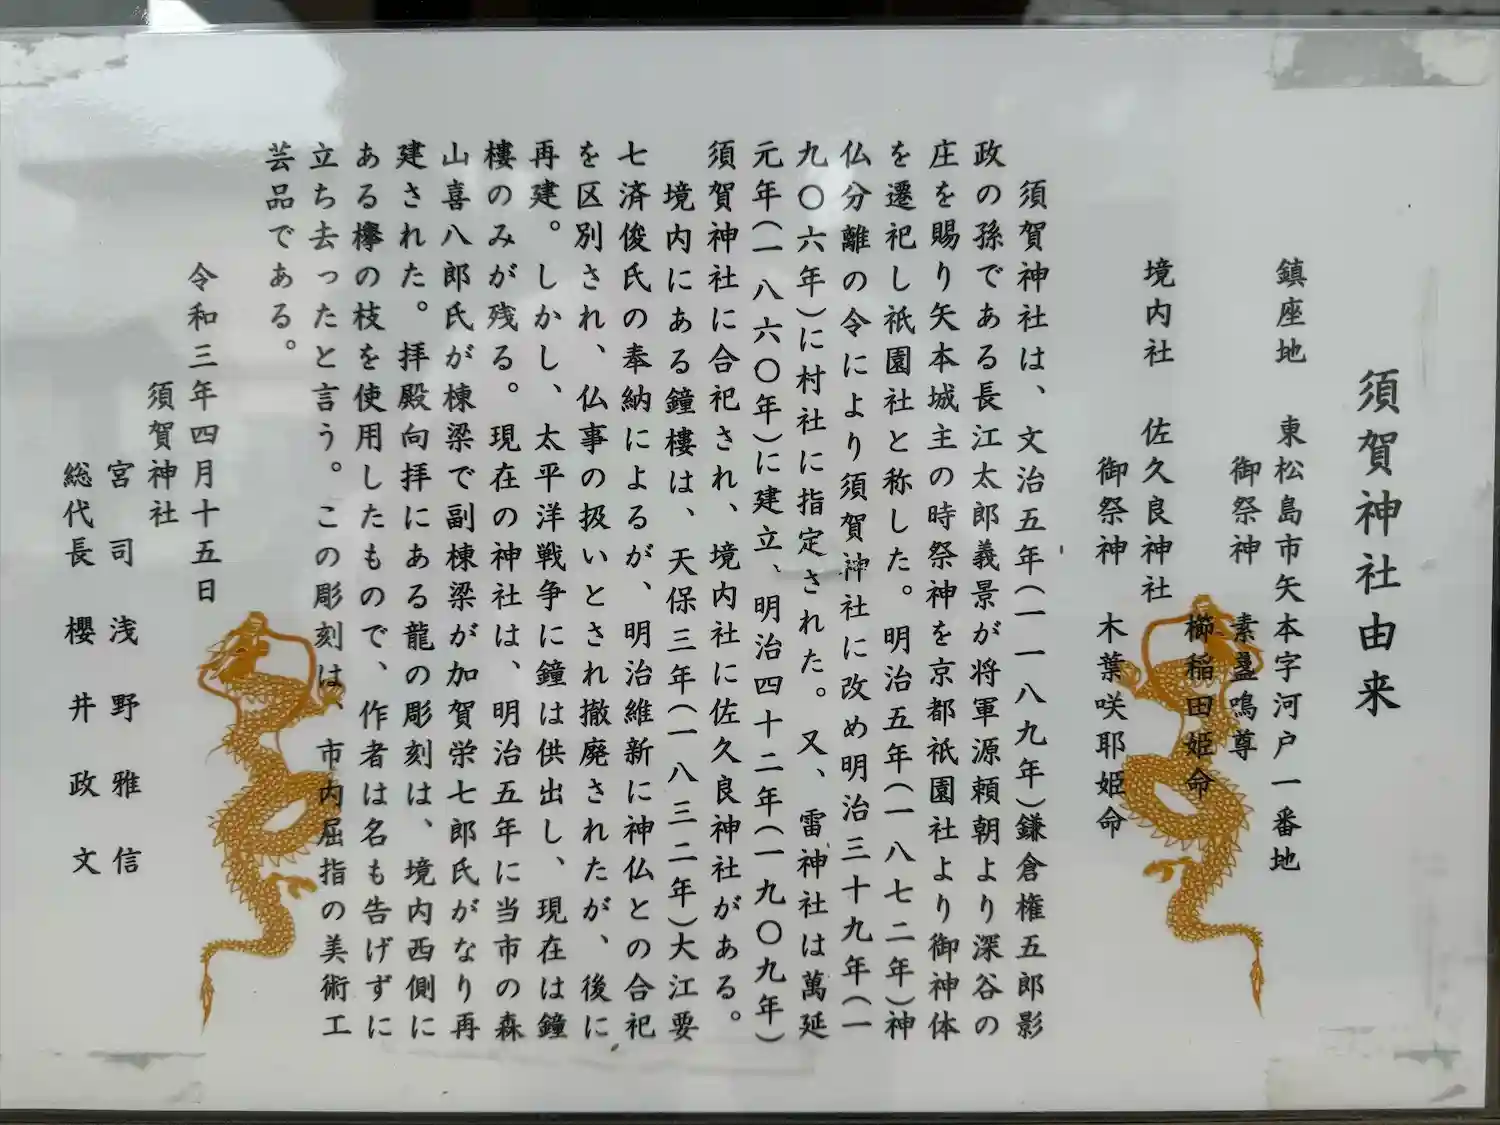 須賀神社由来
鎮座地　東松島市矢本字河戸一番地
御祭神　素盞鳴尊
櫛稲田姫命
境内社　佐久良神社
御祭神　木葉咲耶姫命
須賀神社は、文治五年(一一八九年)鎌倉権五郎影
政の孫である長江太郎義景が将軍源頼朝より深谷の
庄を賜り矢本城主の時祭神を京都祇園社より御神体
を遷祀し祇園社と称した。明治五年(一八七二年)神
仏分離の令により須賀神社に改め明治三十九年(一
九〇六年)に村社に指定された。又、雷神社は萬延
元年(一八六〇年)に建立、明治四十二年(一九〇九年)
須賀神社に合祀され、境内社に佐久良神社がある。
境内にある鐘樓は、天保三年(一八三二年)大江要
七済俊氏の奉納によるが、明治維新に神仏との合祀
を区別され、仏事の扱いとされ撤廃されたが、後に
再建。しかし、太平洋戦争に鐘は供出し、現在は鐘
樓のみが残る。現在の神社は、明治五年に当市の森
山喜八郎氏が棟梁で副棟梁が加賀栄七郎氏がなり再
建された。拝殿向拝にある龍の彫刻は、境内西側に
ある欅の枝を使用したもので、作者は名も告げずに
立ち去ったと言う。この彫刻は、市内屈指の美術工
芸品である。
令和三年四月十五日
須賀神社
宮司　浅野雅信
総代長　櫻井政文